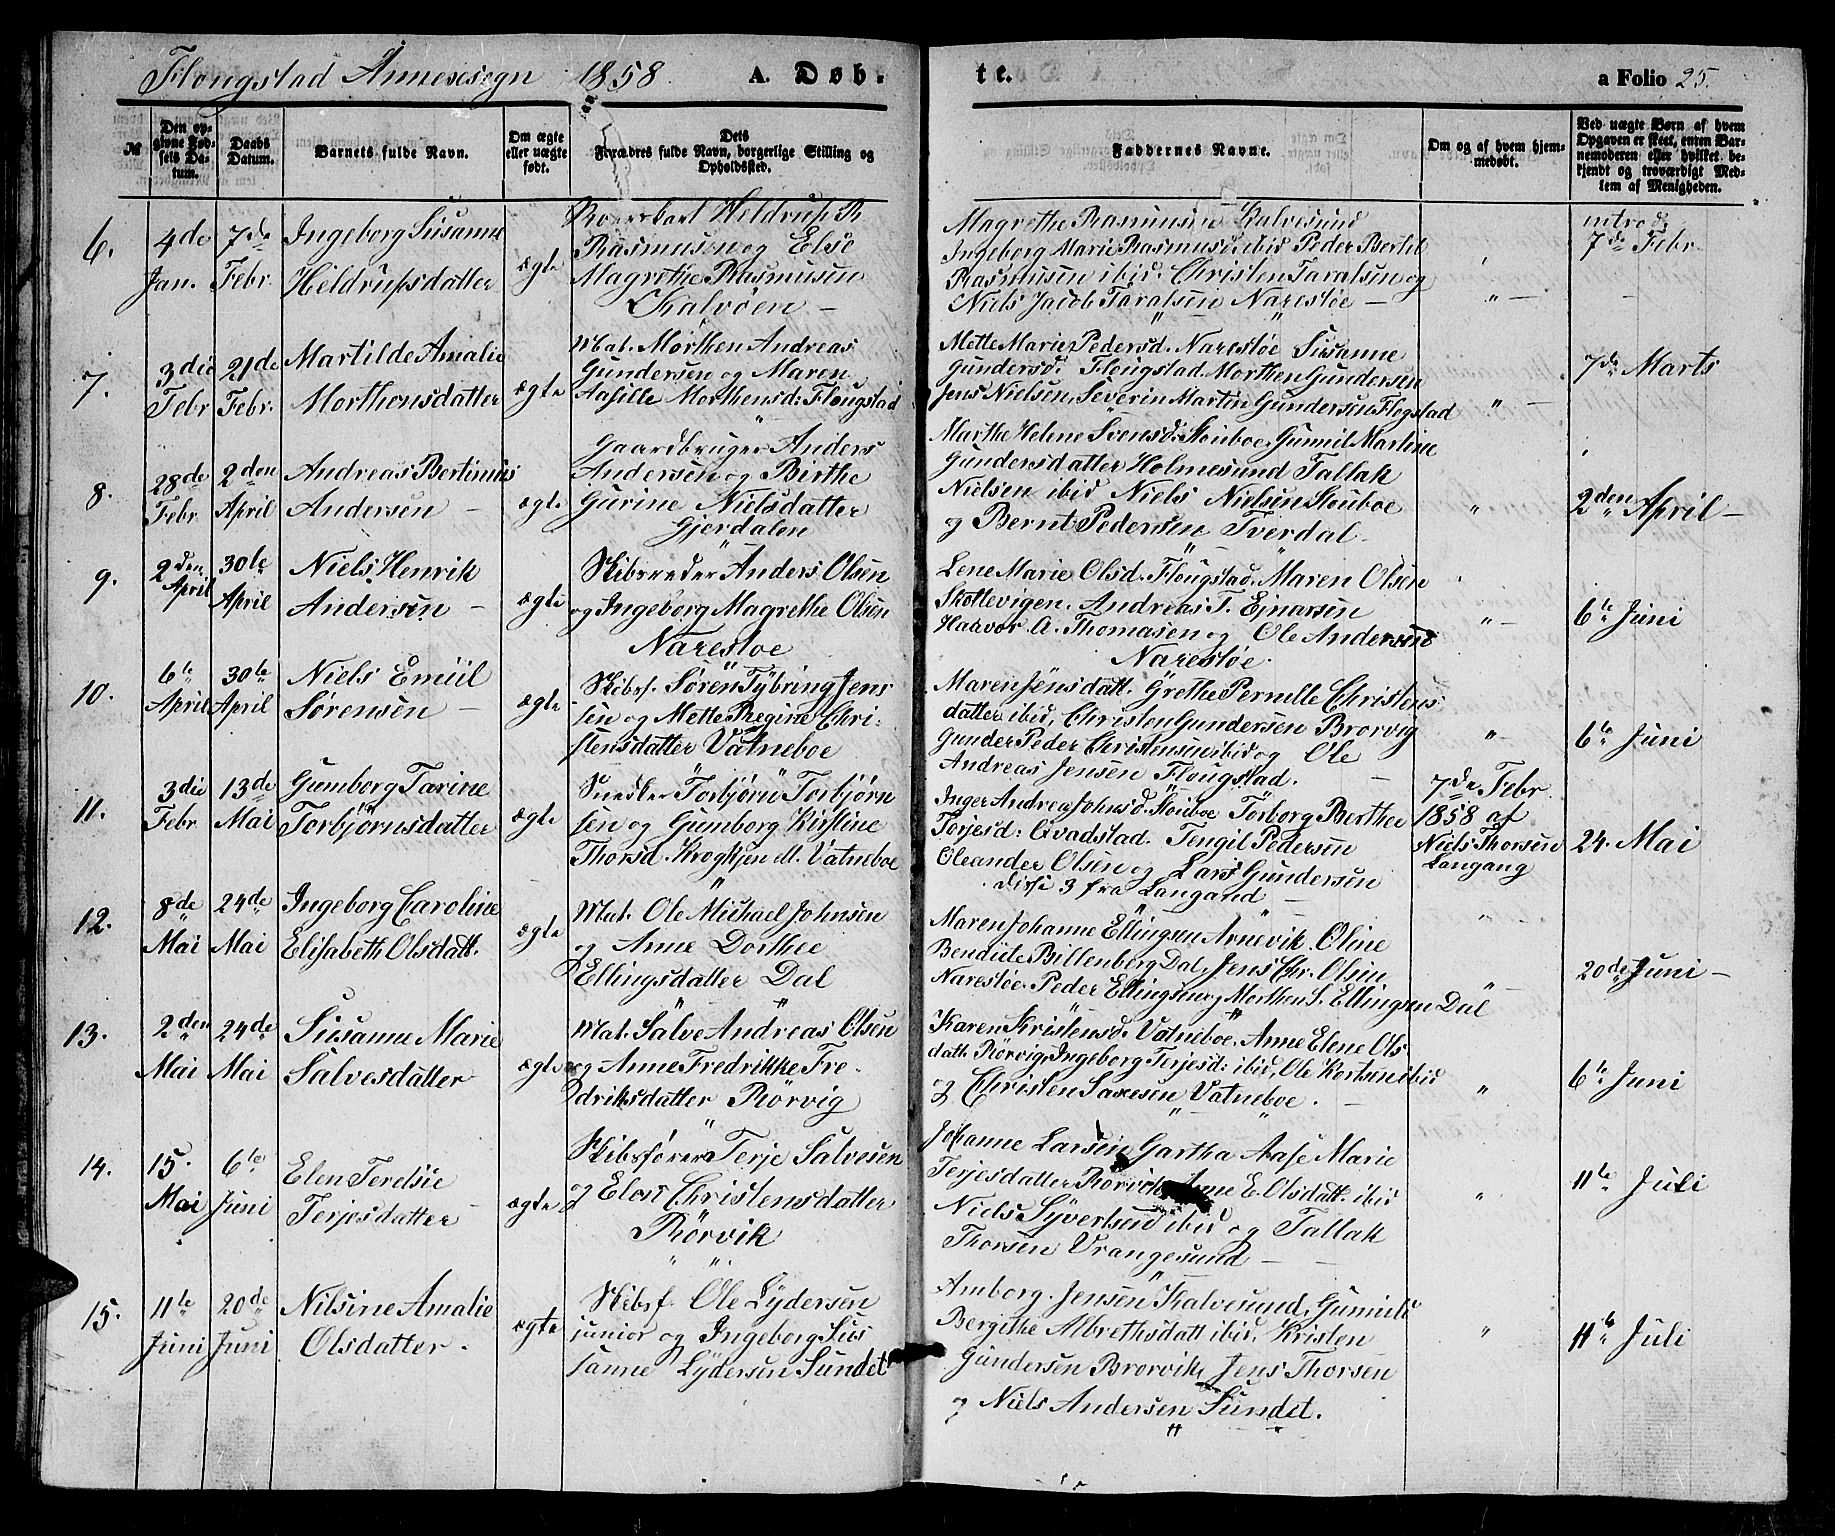 Flougstad Annexsogn 1858. A. Døb-
te. a Folio 25.
№
Den opgivne Fødsels Datum.
Daabs Datum.
Barnets fulde Navn.
Om ægte eller uægte født.
Dets Forældres fulde Navn, borgerlige Stilling og Opholdssted.
Faddernes Navne.
Om og af hvem hjemmedøbt.
Ved uægte Børn af hvem Opgaven er skeet, enten Barnemoderen eller hvilket bekjendt og troværdigt Medlem af Menigheden.
6.
4de
Jan.
7de
Febr.
Ingeborg Susanne
Heldrupsdatter
ægte
Heldrup R.
Rasmusen og Else
Magrethe Rasmusen
Kalvøen –
Magrethe Rasmusen Kalvesund
Ingeborg Marie Rasmusd. ibid Peder Bertel
Rasmusen ibid. Christen Taralsen og
Niels Jacob Taralsen Narestøe –
" –
introd.
7de Febr.
7.
3die
Febr
21de
Febr.
Martilde Amalie
Morthensdatter
ægte
Mat. Morthen Andreas
Gundersen og Maren
Aasille Morthensd: Flougstad
Mette Marie Pedersd. Narestøe Susanne
Gundersd. Flougstad. Morthen Gundersen
Jens Nielsen, Severin Martin Gundersen Flogstad
" –
7de Marts
8.
28de
Febr.
2den
April
Andreas Bertinius
Andersen –
ægte
Gaardbruger Anders
Andersen og Birthe
Gurine Nielsdatter
Gjerdalen
Marthe Helene Svensd. Stouboe, Gunnil Martine
Gundersdatter Holmesund Tallak
Nielsen ibid Niels Nielsen Stouboe
og Bernt Pedersen Tverdal.
"
2den April –
9.
2den
April
30te
April
Niels Henrik
Andersen –
ægte
Skibsreder Anders Olsen
og Ingeborg Magrethe Olsen
Narestoe
Lene Marie Olsd. Flougstad. Maren Olsen
Skottevigen. Andreas T. Ejnarsen
Haavor A. Thomasen og Ole Andersen
Narestøe.
" –
6te Juni
10.
6te
April
30te
April
Niels Emiil
Sørensen –
ægte
Skibsf. Søren Tybring Jens
sen og Mette Regine Chri-
stensdatter Vatneboe
Maren Jensdatt. Grethe Pernille Christens
datter ibid, Christen Gundersen Brorvig
Gunder Peder Christensen ibid og Ole
Andreas Jensen Flougstad. –
" –
6te Juni
11.
3die
Febr
13de
Mai
Gumborg Tarine
Torbjørnsdatter
ægte
Snedker Torbjørn Torbjørn
sen og Gumborg Kirstine
Thorsd. Krogkjen M. Vatneboe
Inger Andrea Johnsd. Stouboe Torborg Berthee
Torjesd: Qvadstad. Tengil Pedersen
Oleander Olsen og Lars Gundersen
disse 3 fra Langand –
7de Febr.
1858 af
Niels Thorsen
Langang
24. Mai
12.
8de
Mai
24de
Mai
Ingeborg Caroline
Elisabeth Olsdatt.
ægte
Mat. Ole Michael Johnsen
og Anne Dorthee
Ellingsdatter Dal
Maren Johanne Ellingsen Arnevik. Oline
Bendicte Billenberg Dal, Jens Chr. Olsen
Narestøe. Peder Ellingsen og Morthen S. Ellingsen Dal
"
20de Juni –
13.
2den
Mai
24de
Mai
Susanne Marie
Salvesdatter
ægte
Mat. Salve Andreas Olsen
og Anne Fredrikke Fre-
driksdatter Rørvig
Karen Kristensd. Vatneboe. Anne Elene Ols
datt. Rørvig, Ingeborg Terjesd: ibid, Ole Kortsen ibid
og Christen Saxesen Vatneboe. –
"
6te Juni
14.
15.
Mai
6te
Juni
Elen Terelsie
Terjesdatter –
ægte
Skibsfører Terje Salvesen
og Elen Christensdatter
Rørvik
Johanne Larsen Gartha Aase Marie
Terjesdatter Rørvik Anne E. Olsdatt. ibid
Niels Syvertsen ibid og Tallak
Thorsen Vrangesund –
"
11te Juli
15.
11te
Juni
20de
Juni
Nilsine Amalie
Olsdatter.
ægte
Skibsf. Ole Lydersen
junior og Ingeborg Sus
sanne Lydersen Sundet
Amborg Jensen Kalvesund, Gunnild
Bergithe Albrethsdatt ibid, Kristen
Gundersen Brorvik, Jens Thorsen
og Niels Andersen Sundet.
"
11te Juli